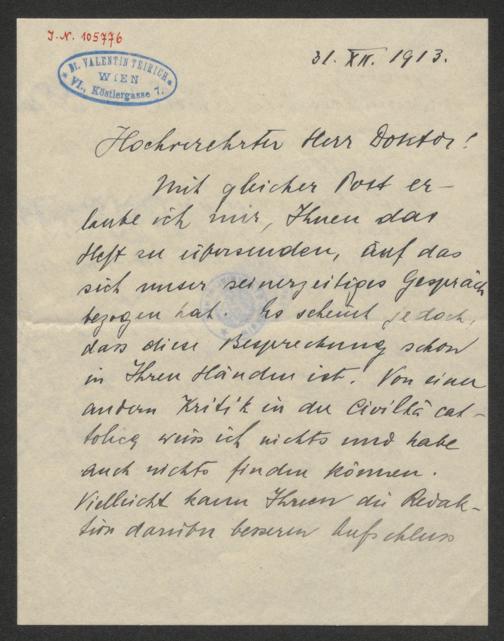 J. N. 105776
Dr. VALENTIN TEIRICH
WIEN
VI., Köstlergasse 7.
31. XII. 1913.
Hochverehrter Herr Doktor!
Mit gleicher Post er-
laube ich mir, Ihnen das
Heft zu übersenden, auf das
sich unser seinerzeitiges Gespräch
bezogen hat. Es scheint jedoch,
dass diese Besprechung schon
in Ihren Händen ist. Von einer
andern Kritik in der Civiltà cat-
tolica weiss ich nichts und habe
auch nichts finden können.
Vielleicht kann Ihnen die Redak-
tion darüber besseren Aufschluss